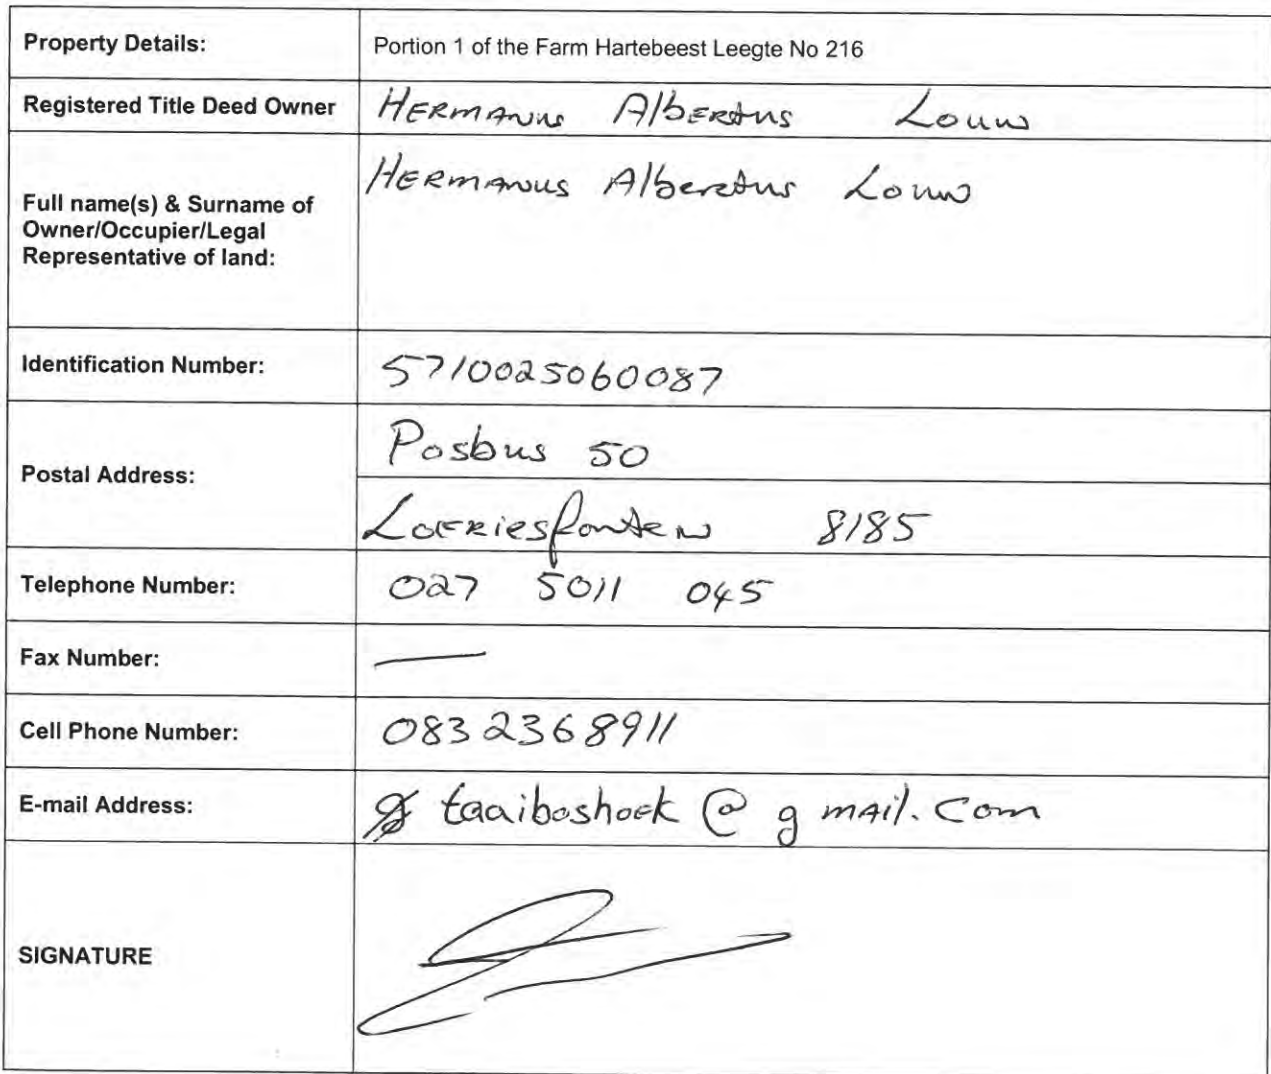 Property Details: Portion 1 of the Farm Hartebeest Leegte No 216
Registered Title Deed Owner HERMANUS AlbERtus Louw
Full name(s) & Surname of
Owner/Occupier/Legal
Representative of land:
HERMANUS Albertus Louw
Identification Number: 5710025060087
Postal Address:
Posbus 50
LoERiesfontein 8185
Telephone Number: 027 5011 045
Fax Number: —
Cell Phone Number: 083 2368911
E-mail Address: taaiboshoek @ g mAil. Com
SIGNATURE